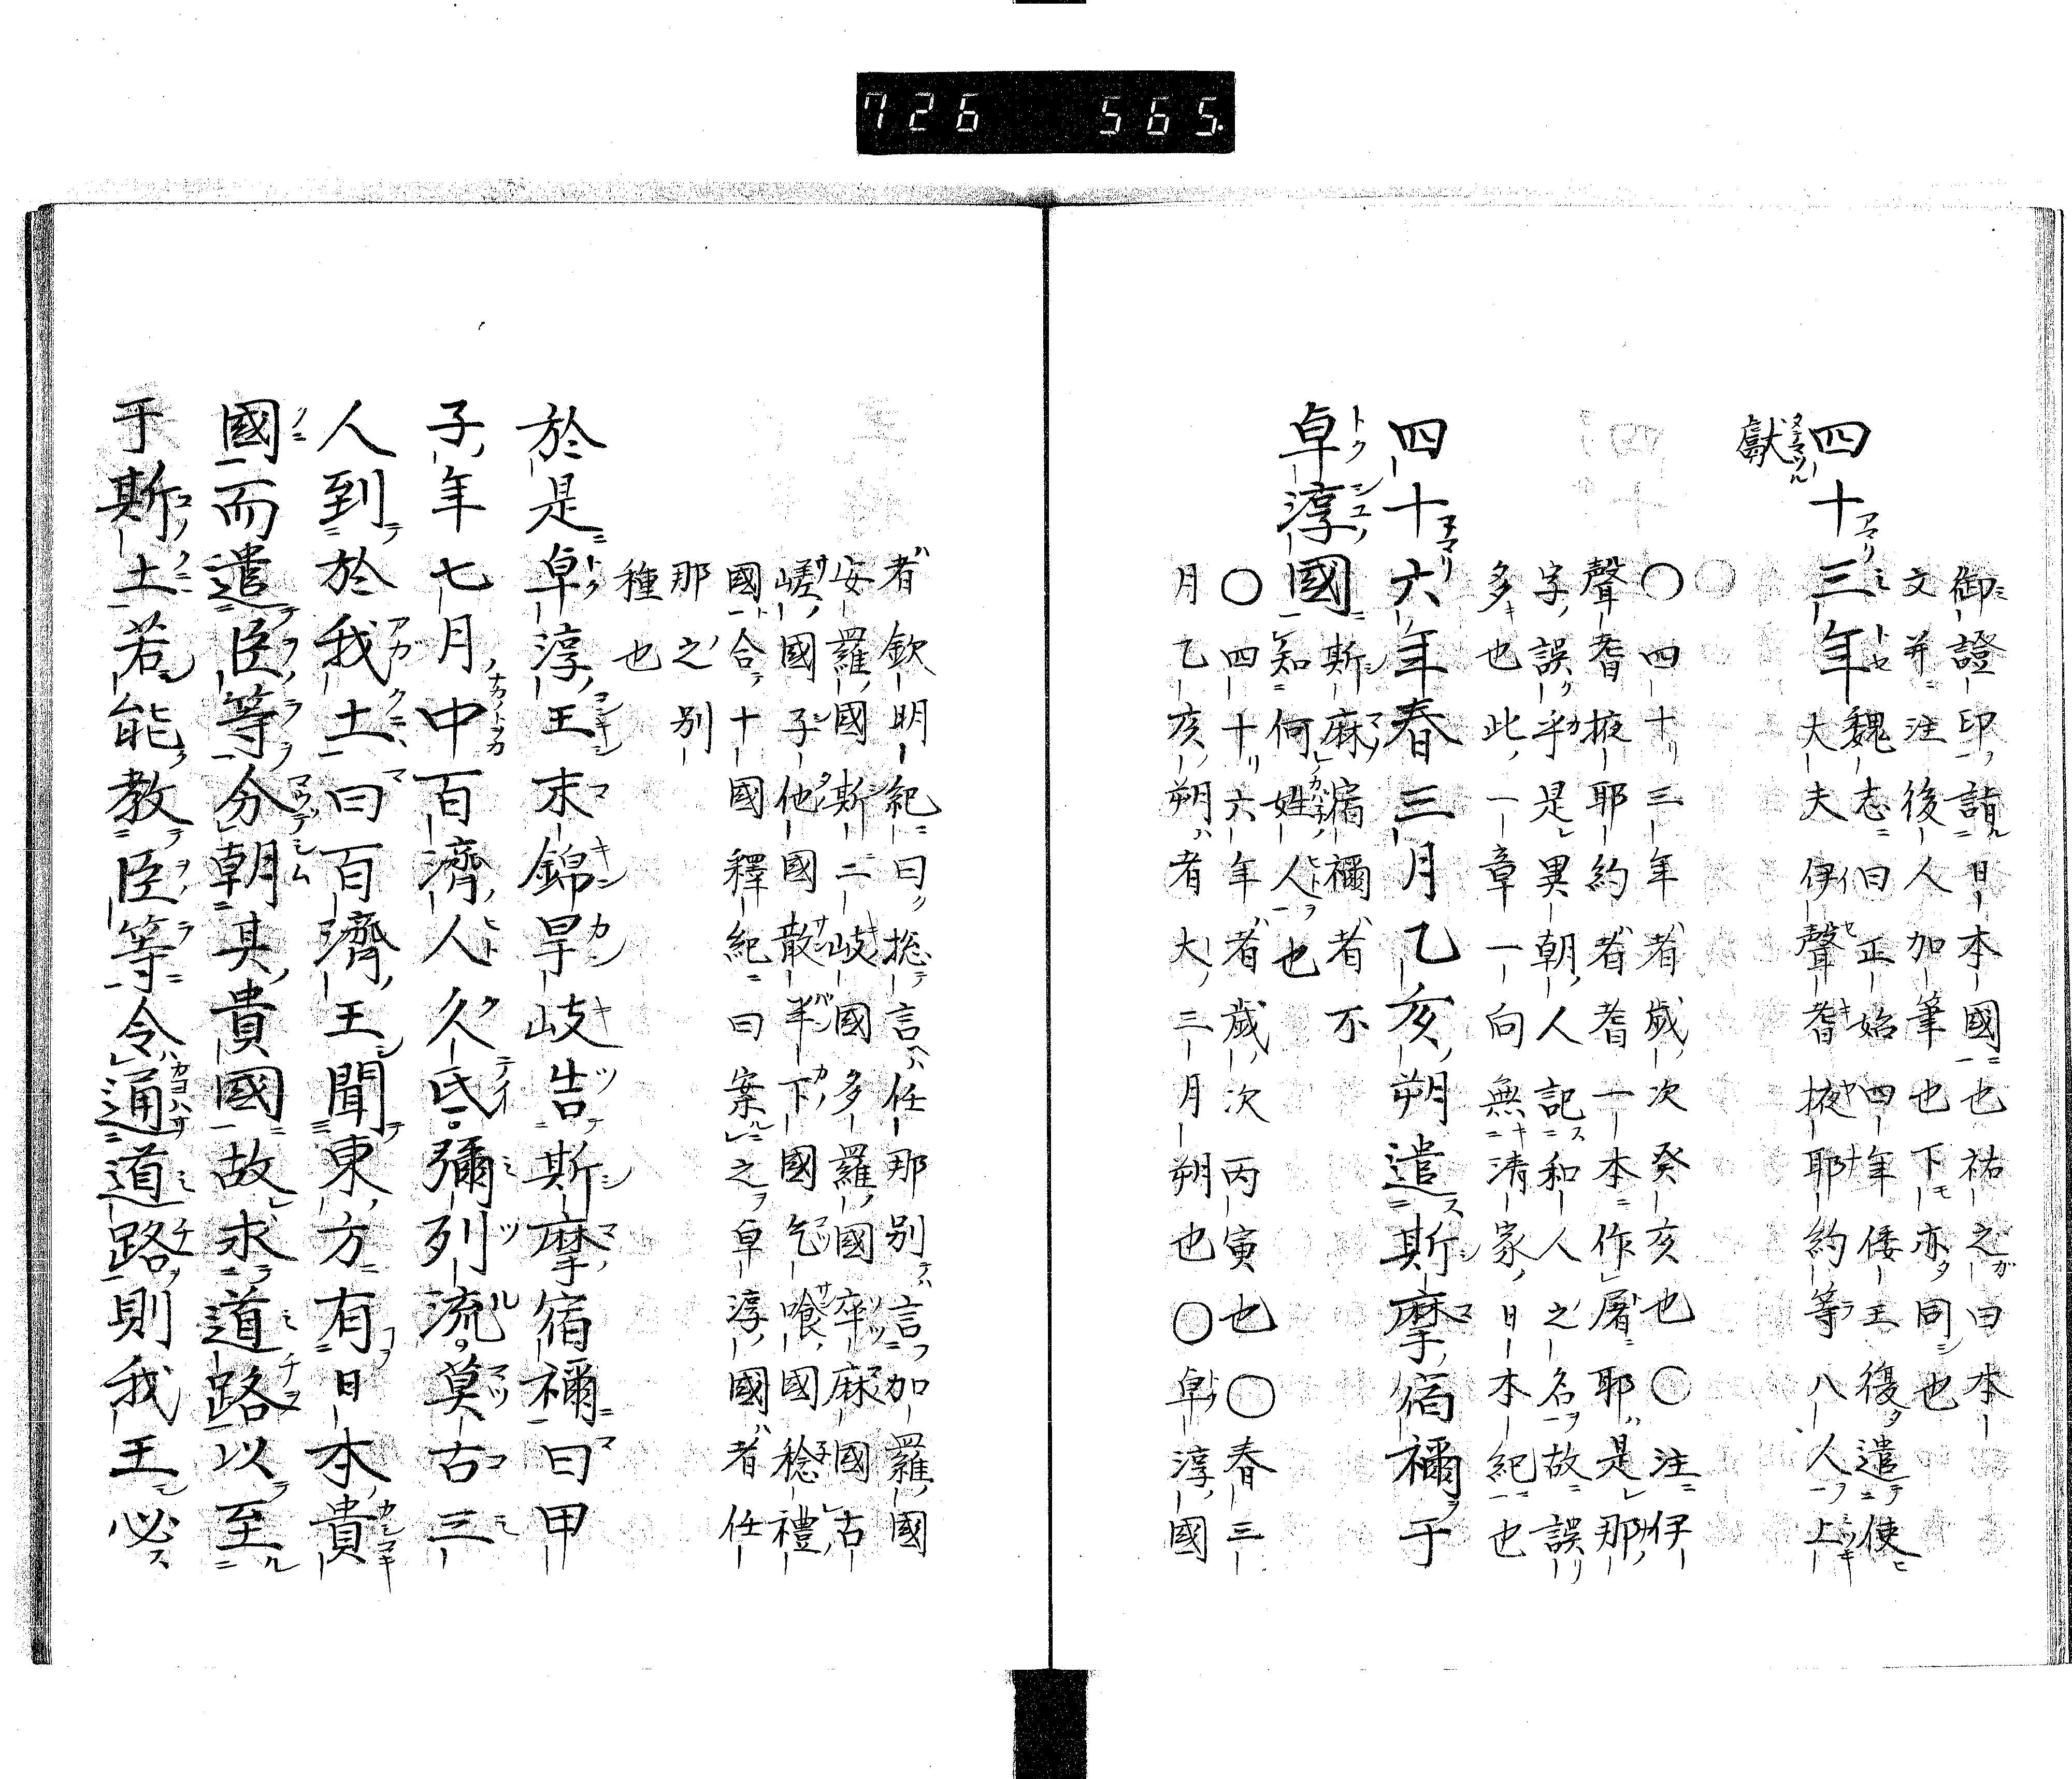 726 565.
御證印詣日本國也祐之曰本
文并注後人加筆也下亦同也
四十三年魏志曰正始四年倭王復遣使
大夫伊聲耆掖耶約等八人上
獻
〇四十三年者歲次癸亥也〇注伊
聲耆掖耶約者耆一本作屠耶是那
字誤乎是異朝人記和人之名故誤
多也此一章一向無清家日本紀也
四十六年春三月乙亥朔遣斯摩宿禰于
卓淳國斯麻宿禰者不
知何姓人也
〇四十六年者歲次丙寅也〇春三
月乙亥朔者大三月朔也〇卓淳國
者欽明紀曰摠言任那別言加羅國
安羅國斯二岐國多羅國卒麻國古
嵯國子他國散半下國乞飡國稔禮
國合十國釋紀曰案之卓淳國者任
那之別
種也
於是卓淳王末錦旱岐告斯摩宿禰曰甲
子年七月中百濟人久氐彌列流莫古三
人到於我土曰百濟王聞東方有日本貴
國而遣臣等令朝其貴國故求道路以至
于斯土若能教臣等令通道路則我王必